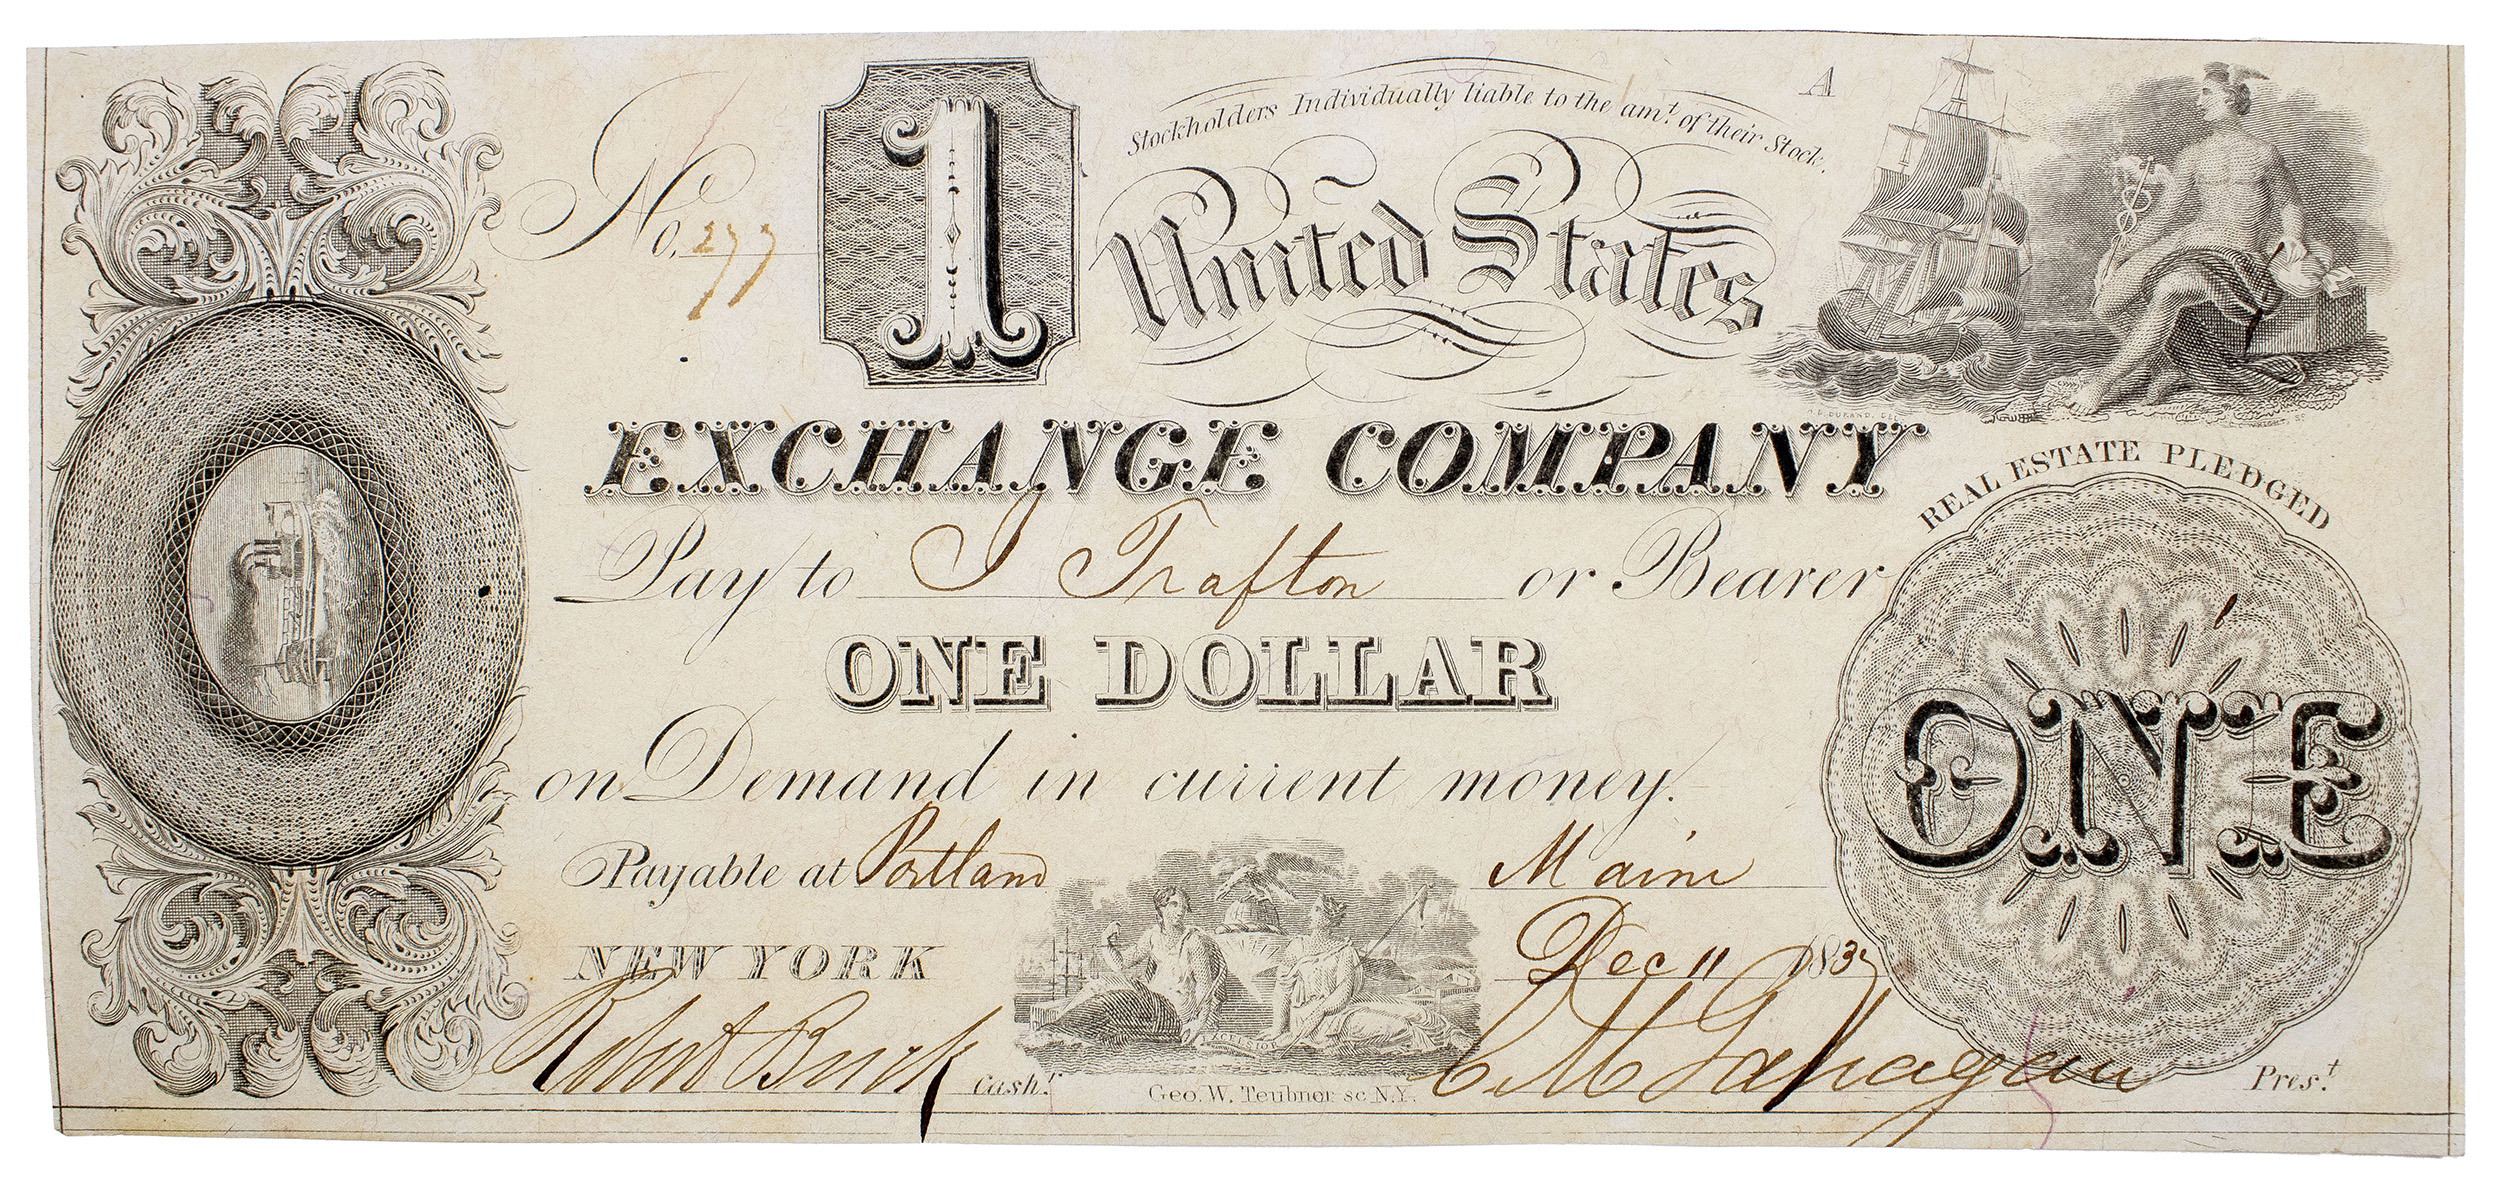 Stockholders Individually liable to the amt. of their Stock.
A
No. 277
1
United States
EXCHANGE COMPANY
REAL ESTATE PLEDGED
Pay to J Trafton or Bearer
ONE DOLLAR
ONE
on Demand in current money.
Payable at Portland Maine
NEW YORK Dec 11 1837
EXCELSIOR
Robert Buck Cash.r
Pres.t
Geo. W. Teubner sc N.Y.
A.B. DURAND. DEL.